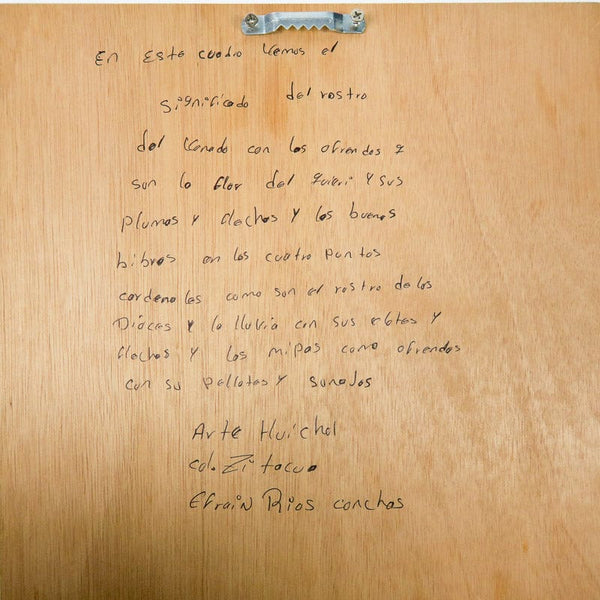 En Este cuadro Vemos el
significado del rostro
del Venado con las ofrendas q
son la flor del quieri y sus
plumas y flechas y las buenas
bibras en los cuatro puntos
cardenales como son el rostro de los
Dioces y la lluvia con sus elotes y
flechas y las mipas como ofrendas
con su pellotes y sonados
Arte Huichol
col. Zitacua
Efrain Rios conchas